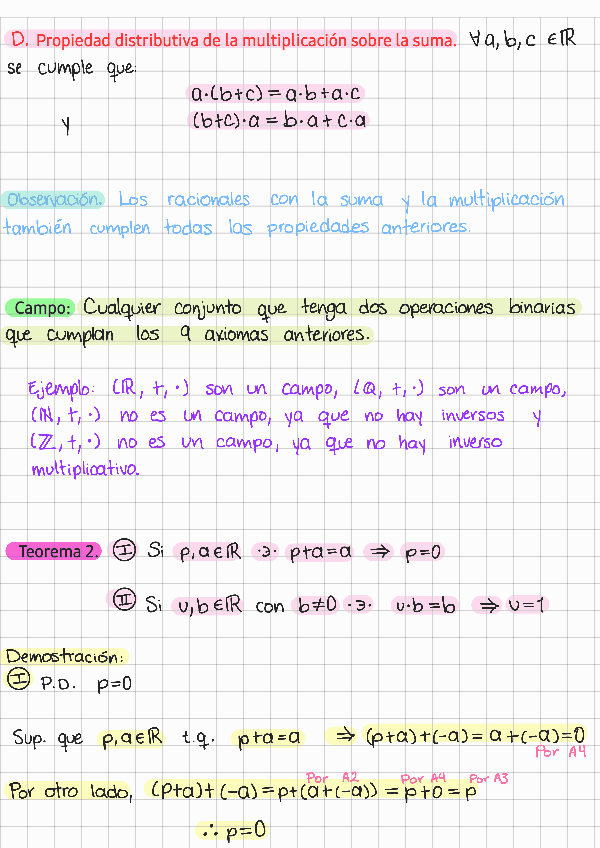 D. Propiedad distributiva de la multiplicación sobre la suma. ∀a,b,c ∈ℝ
se cumple que:
a·(b+c)=a·b+a·c
y (b+c)·a=b·a+c·a
Observación. Los racionales con la suma y la multiplicación
también cumplen todas las propiedades anteriores.
Campo: Cualquier conjunto que tenga dos operaciones binarias
que cumplan los 9 axiomas anteriores.
Ejemplo: (ℝ,+,·) son un campo, (ℚ,+,·) son un campo,
(ℕ,+,·) no es un campo, ya que no hay inversos y
(ℤ,+,·) no es un campo, ya que no hay inverso
multiplicativo.
Teorema 2. Ⓘ Si p,a∈ℝ ·∋· p+a=a ⇒ p=0
Ⅱ Si u,b∈ℝ con b≠0 ·∋· u·b=b ⇒ u=1
Demostración:
Ⓘ P.D. p=0
Sup. que p,a∈ℝ t.q. p+a=a ⇒ (p+a)+(-a)=a+(-a)=0
Por A4
Por A2 Por A4 Por A3
Por otro lado, (p+a)+(-a)=p+(a+(-a))=p+0=p
∴ p=0